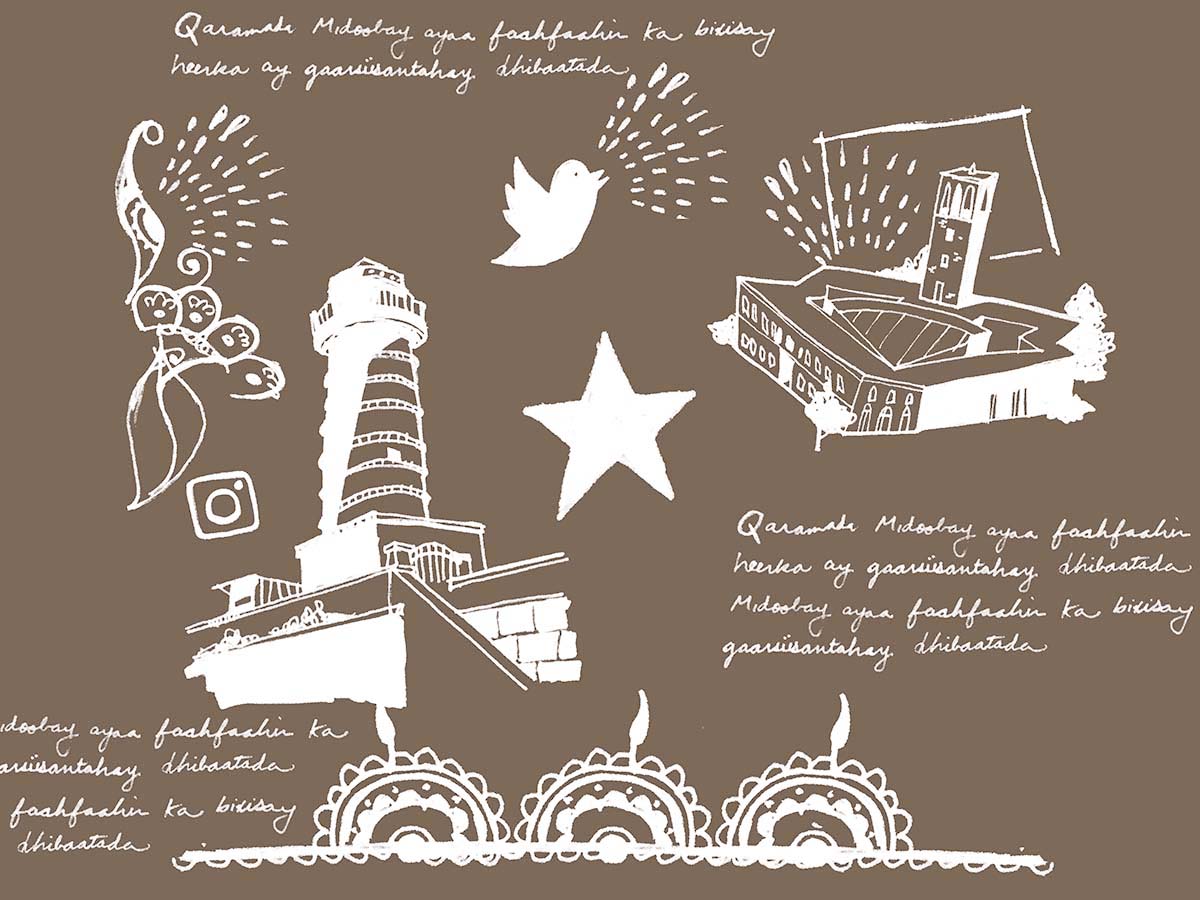 Qaramada Midoobay ayaa faahfaahin ka bixisay
heerka ay gaarsiisantahay dhibaatada
Qaramada Midoobay ayaa faahfaahin
heerka ay gaarsiisantahay dhibaatada
Midoobay ayaa faahfaahin ka bixisay
gaarsiisantahay dhibaatada
idoobay ayaa faahfaahin ka
arsiisantahay dhibaatada
faahfaahin ka bixisay
dhibaatada